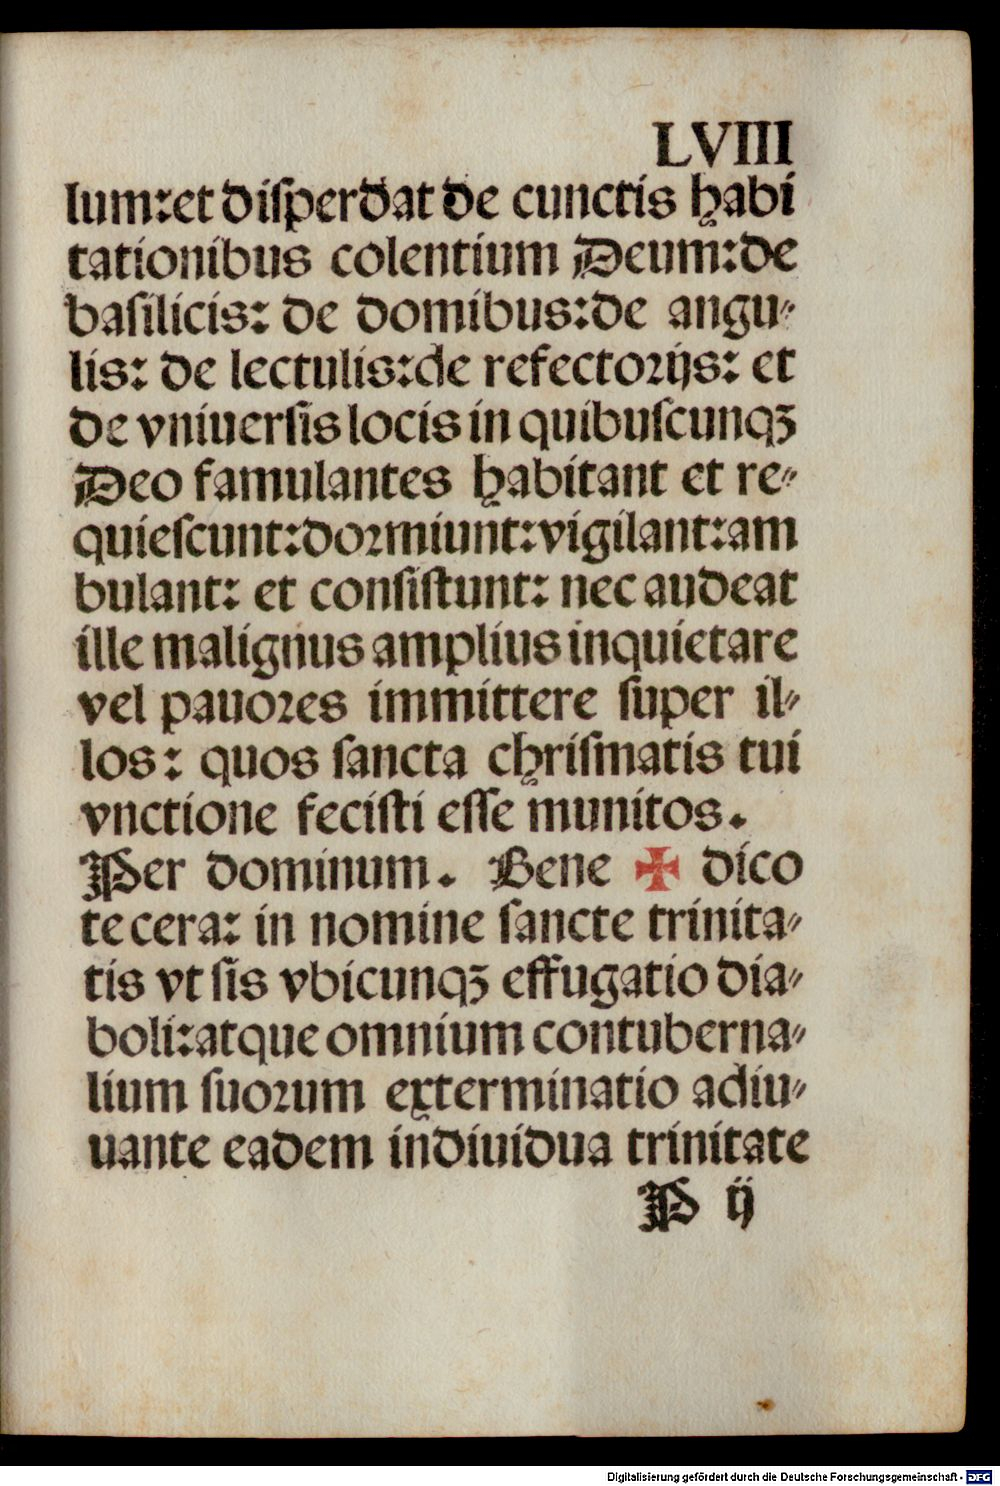 LVIII
lum:et disperdat de cunctis habi
tationibus colentium Deum:de
basilicis: de domibus:de angu-
lis: de lectulis:de refectorijs: et
de vniuersis locis in quibuscunqꝫ
Deo famulantes habitant et re-
quiescunt:dormiunt:vigilant:am
bulant: et consistunt: nec audeat
ille malignus amplius inquietare
vel pauores immittere super il-
los: quos sancta chrismatis tui
vnctione fecisti esse munitos.
Per dominum. Bene ✠ dico
te cera: in nomine sancte trinita-
tis vt sis vbicunqꝫ effugatio dia-
boli:atque omnium contuberna-
lium suorum exterminatio adiu-
uante eadem indiuidua trinitate
P ij
Digitalisierung gefördert durch die Deutsche Forschungsgemeinschaft - DFG